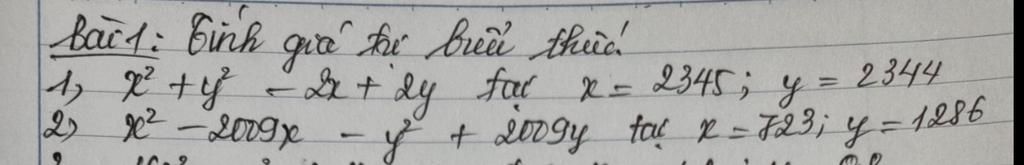 Bài 1: Tính giá trị biểu thức.
1, x² + y² - 2x + 2y tại x = 2345; y = 2344
2, x² - 2009x - y² + 2009y tại x = 723; y = 1286